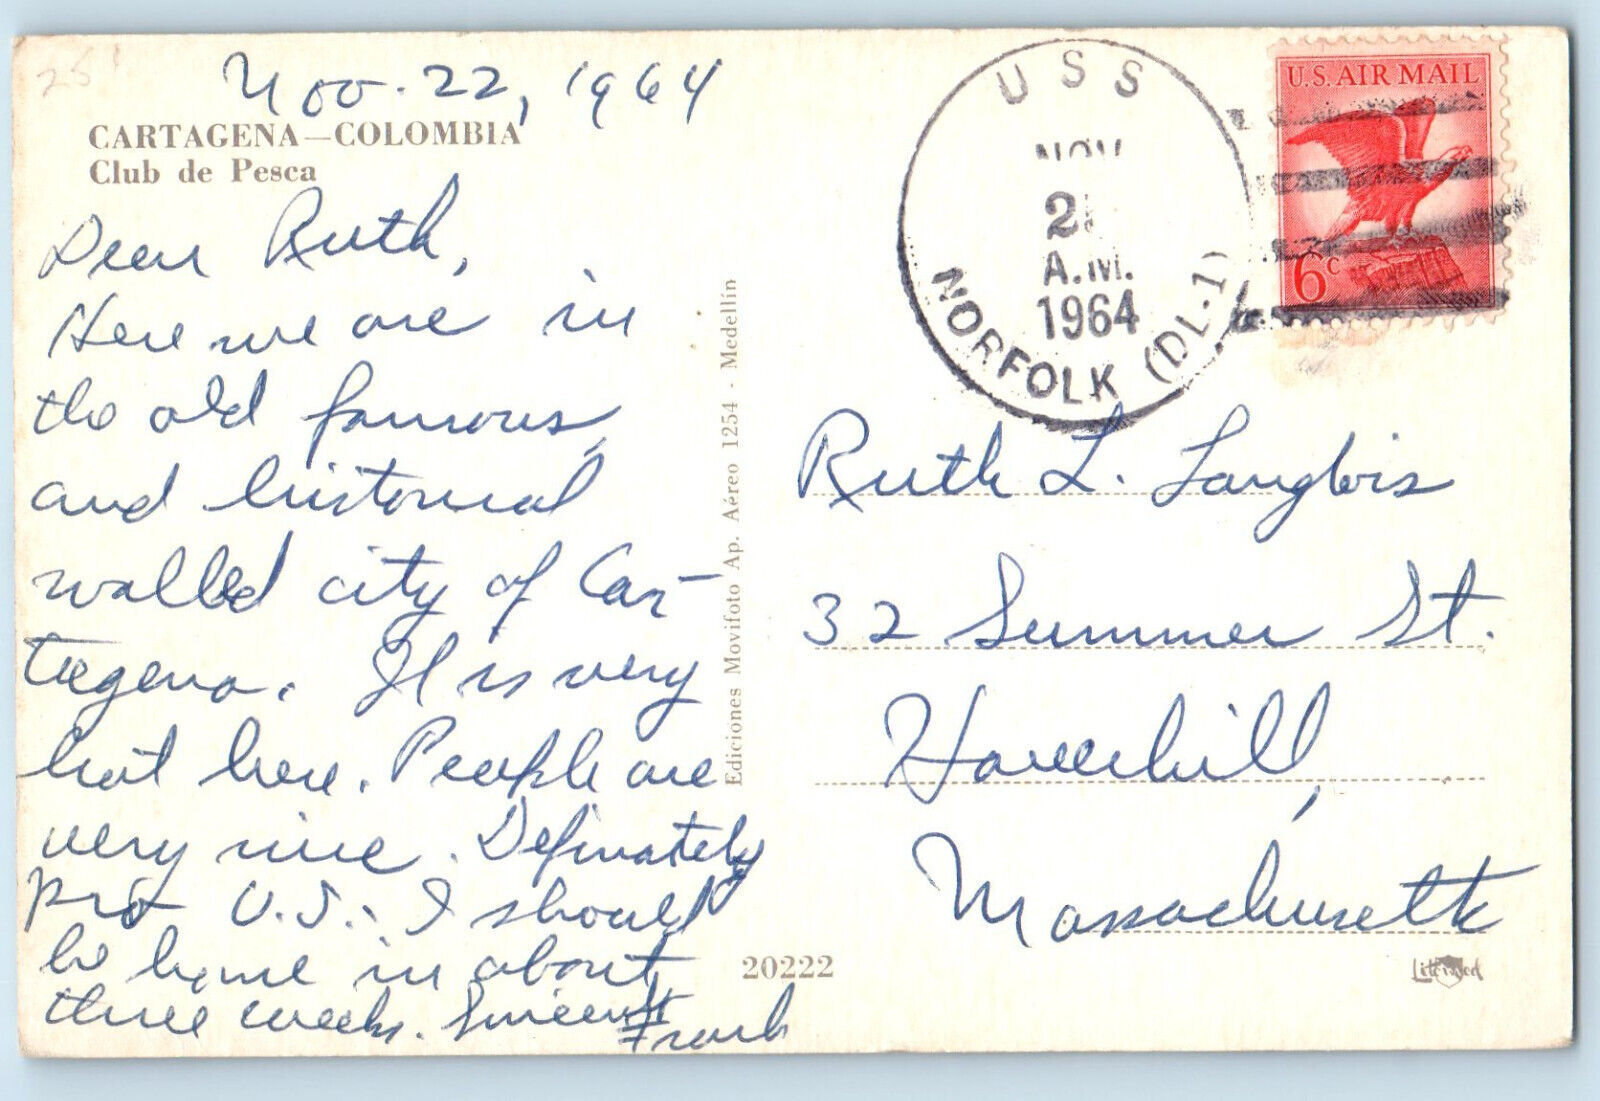 Nov. 22, 1964
CARTAGENA—COLOMBIA
Club de Pesca
Dear Ruth,
Here we are in
the old famous,
and historical
walled city of Car-
tagena. It is very
hot here. People are
very nice. Definately
pro U.S. I should
be home in about
three weeks. Sincerely
Frank
Ediciones Movifoto Ap. Aéreo 1254 - Medellín
20222
USS
NOV
2
A.M.
1964
NORFOLK (DL-1)
U.S. AIR MAIL
6c
Ruth L. Langlois
32 Summer St.
Haverhill,
Massachusetts